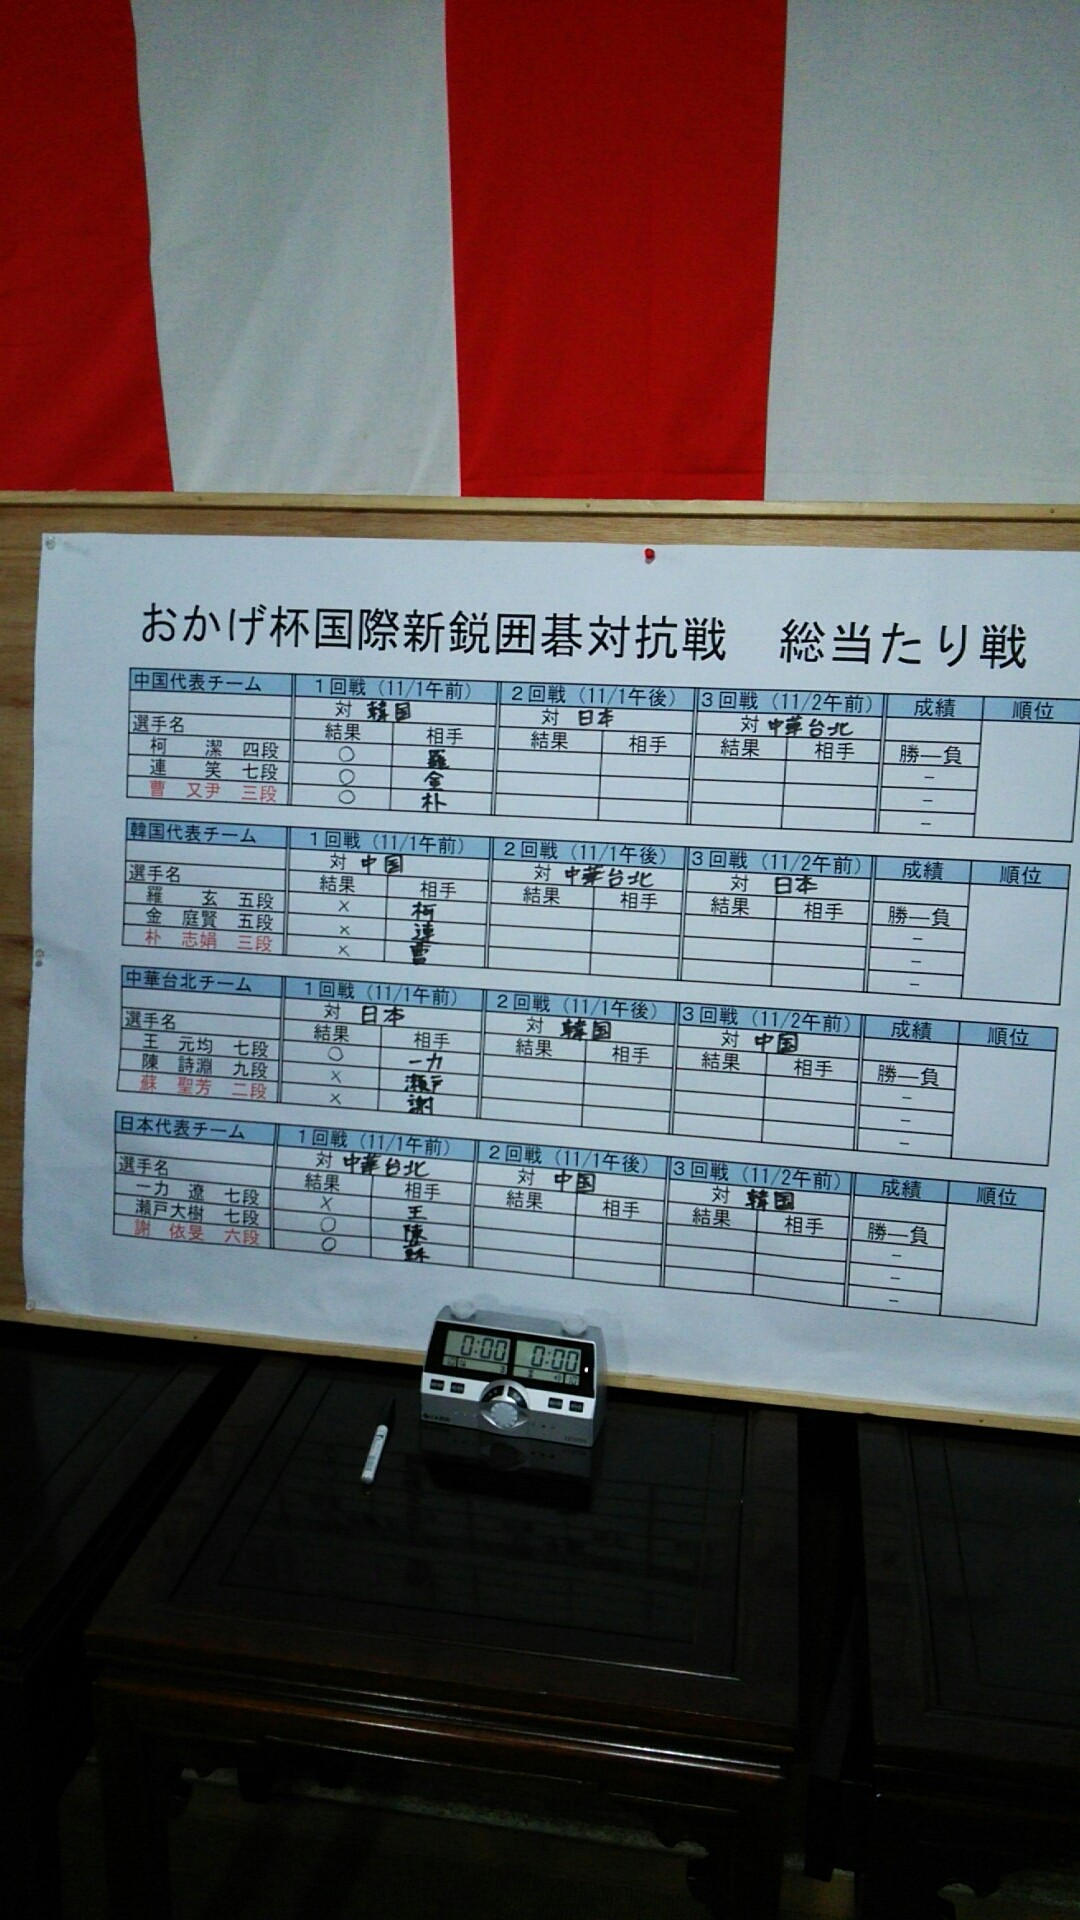 おかげ杯国際新鋭囲碁対抗戦　総当たり戦
中国代表チーム 1回戦（11/1午前） 2回戦（11/1午後） 3回戦（11/2午前） 成績 順位
対 韓国 対 日本 対 中華台北
選手名 結果 相手 結果 相手 結果 相手 勝―負
柯　潔　四段 ○ 羅 －
連　笑　七段 ○ 金 －
曹　又尹　三段 ○ 朴 －
韓国代表チーム 1回戦（11/1午前） 2回戦（11/1午後） 3回戦（11/2午前） 成績 順位
対 中国 対 中華台北 対 日本
選手名 結果 相手 結果 相手 結果 相手 勝―負
羅　玄　五段 × 柯 －
金　庭賢　五段 × 連 －
朴　志娟　三段 × 曹 －
中華台北チーム 1回戦（11/1午前） 2回戦（11/1午後） 3回戦（11/2午前） 成績 順位
対 日本 対 韓国 対 中国
選手名 結果 相手 結果 相手 結果 相手 勝―負
王　元均　七段 ○ 一力 －
陳　詩淵　九段 × 瀬戸 －
蘇　聖芳　二段 × 謝 －
日本代表チーム 1回戦（11/1午前） 2回戦（11/1午後） 3回戦（11/2午前） 成績 順位
対 中華台北 対 中国 対 韓国
選手名 結果 相手 結果 相手 結果 相手 勝―負
一力　遼　七段 × 王 －
瀬戸大樹　七段 ○ 陳 －
謝　依旻　六段 ○ 蘇 －
0:00 0:00